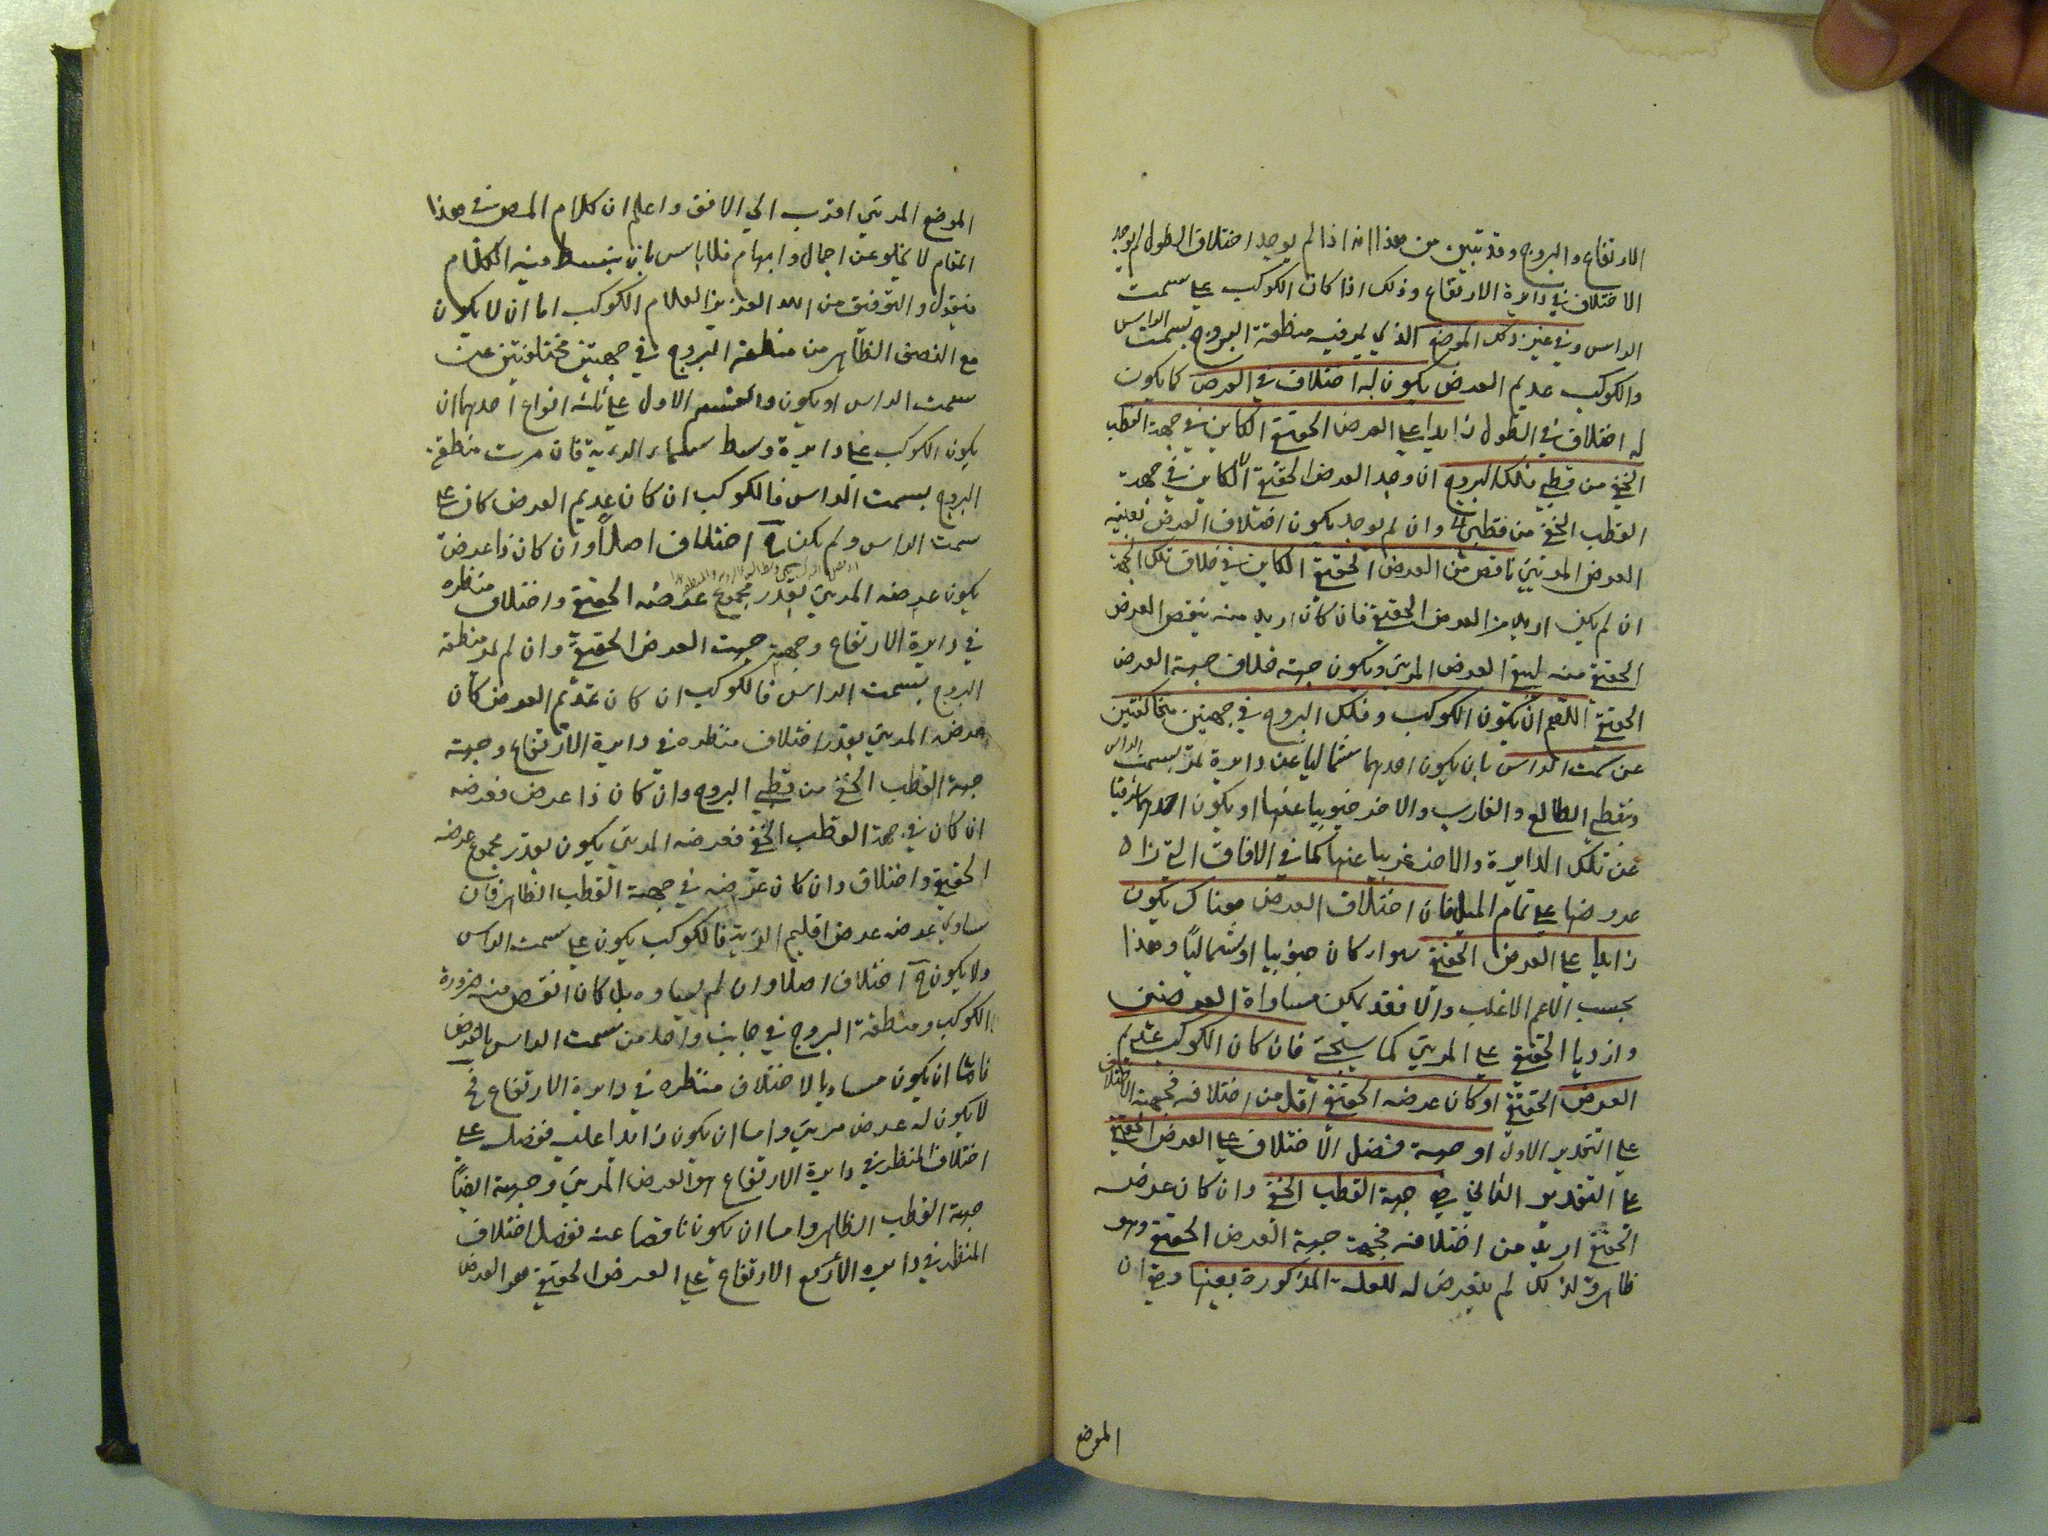 الارتفاع والبروج وقد تبين من هذا انه اذا لم يوجد اختلاف الطول لم يوجد
الاختلاف في دايرة الارتفاع وذلك اذا كان الكوكب على سمت
الراس وفي غير ذلك الموضع الذي يمر فيه منطقة البروج بسمت الراس
والكوكب عديم العرض يكون له اختلاف في العرض كما يكون
له اختلاف في الطول زايدا على العرض الحقيقي الكاين في جهة القطب
الخفي من قطبي فلك البروج ان وجد العرض الحقيقي الكاين في جهة
القطب الخفي من قطبي وان لم يوجد يكون اختلاف العرض بعينه
العرض المرئي ناقص من العرض الحقيقي الكاين في خلاف تلك الجهة
ان لم يكن ازيد من العرض الحقيقي فان كان ازيد منه ينقص العرض
الحقيقي منه ليبقى العرض المرئي ويكون جهته خلاف جهة العرض
الحقيقي اللهم ان يكون الكوكب وفلك البروج في جهتين متخالفتين
عن سمت الراس بان يكون احدهما شماليا عن دايرة تمر بسمت الراس
ونقطتي الطالع والغارب والاخر جنوبيا عنها او يكون احدهما شرقيا
عن تلك الدايرة والاخر غربيا عنها كما في الافاق التي زاد
عروضها على تمام الميل فان اختلاف العرض هناك يكون
زايدا على العرض الحقيقي سواء كان جنوبيا او شماليا وهذا
بحسب الاعم الاغلب والا فقد يمكن مساواة العرضين
وازدياد الحقيقي على المرئي كما سيجئ فان كان الكوكب عديم
العرض الحقيقي او كان عرضه الحقيقي اقل من اختلافه فجهته الاختلاف
على التقدير الاول او جهة فضل الاختلاف على العرض الحقيقي
على التقدير الثاني هي جهة القطب الخفي وان كان عرضه
الحقيقي ازيد من اختلافه فجهته جهة العرض الحقيقي وهو
ظاهر ولذلك لم يتعرض له للعلة المذكورة بعينها وهي ان
الموضع
الموضع المرئي اقرب الى الافق واعلم ان كلام المص في هذا
المقام لا يخلو عن اجمال وابهام فلا باس بان ينبسط فيه الكلام
فيقول والتوفيق من الله العزيز العلام الكوكب اما ان لا يكون
مع النصف الظاهر من منطقة البروج في جهتين مختلفتين عن
سمت الراس او يكون والقسم الاول على ثلثة انواع احدها ان
يكون الكوكب على دايرة وسط سماء الرؤية فان مرت منطقة
البروج بسمت الراس فالكوكب ان كان عديم العرض كان على
سمت الراس ولم يكن له اختلاف اصلا وان كان ذا عرض
يكون عرضه المرئي بقدر مجموع عرضه الحقيقي واختلاف منظره
في دايرة الارتفاع وجهته جهت العرض الحقيقي وان لم تمر منطقة
البروج بسمت الراس فالكوكب ان كان عديم العرض كان
عرضه المرئي بقدر اختلاف منظره في دايرة الارتفاع وجهته
جهة القطب الخفي من قطبي البروج وان كان ذا عرض فعرضه
ان كان في جهة القطب الخفي فعرضه المرئي يكون بقدر مجموع عرضه
الحقيقي واختلاف وان كان عرضه في جهة القطب الظاهر فان
ساوى عرضه عرض اقليم الرؤية فالكوكب يكون على سمت الراس
ولا يكون له اختلاف اصلا وان لم يساوه بل كان انقص منه ضرورة
الكوكب ومنطقة البروج في جانب واحد من سمت الراس بالفرض
فاما ان يكون مساويا لاختلاف منظره في دايرة الارتفاع فح
لا يكون له عرض مرئي واما ان يكون زايدا عليه ففضله على
اختلاف المنظر في دايرة الارتفاع هو العرض المرئي وجهته ايضا
جهة القطب الظاهر واما ان يكون ناقصا عنه ففضل اختلاف
المنظر في دايرة الارتفاع على العرض الحقيقي هو العرض